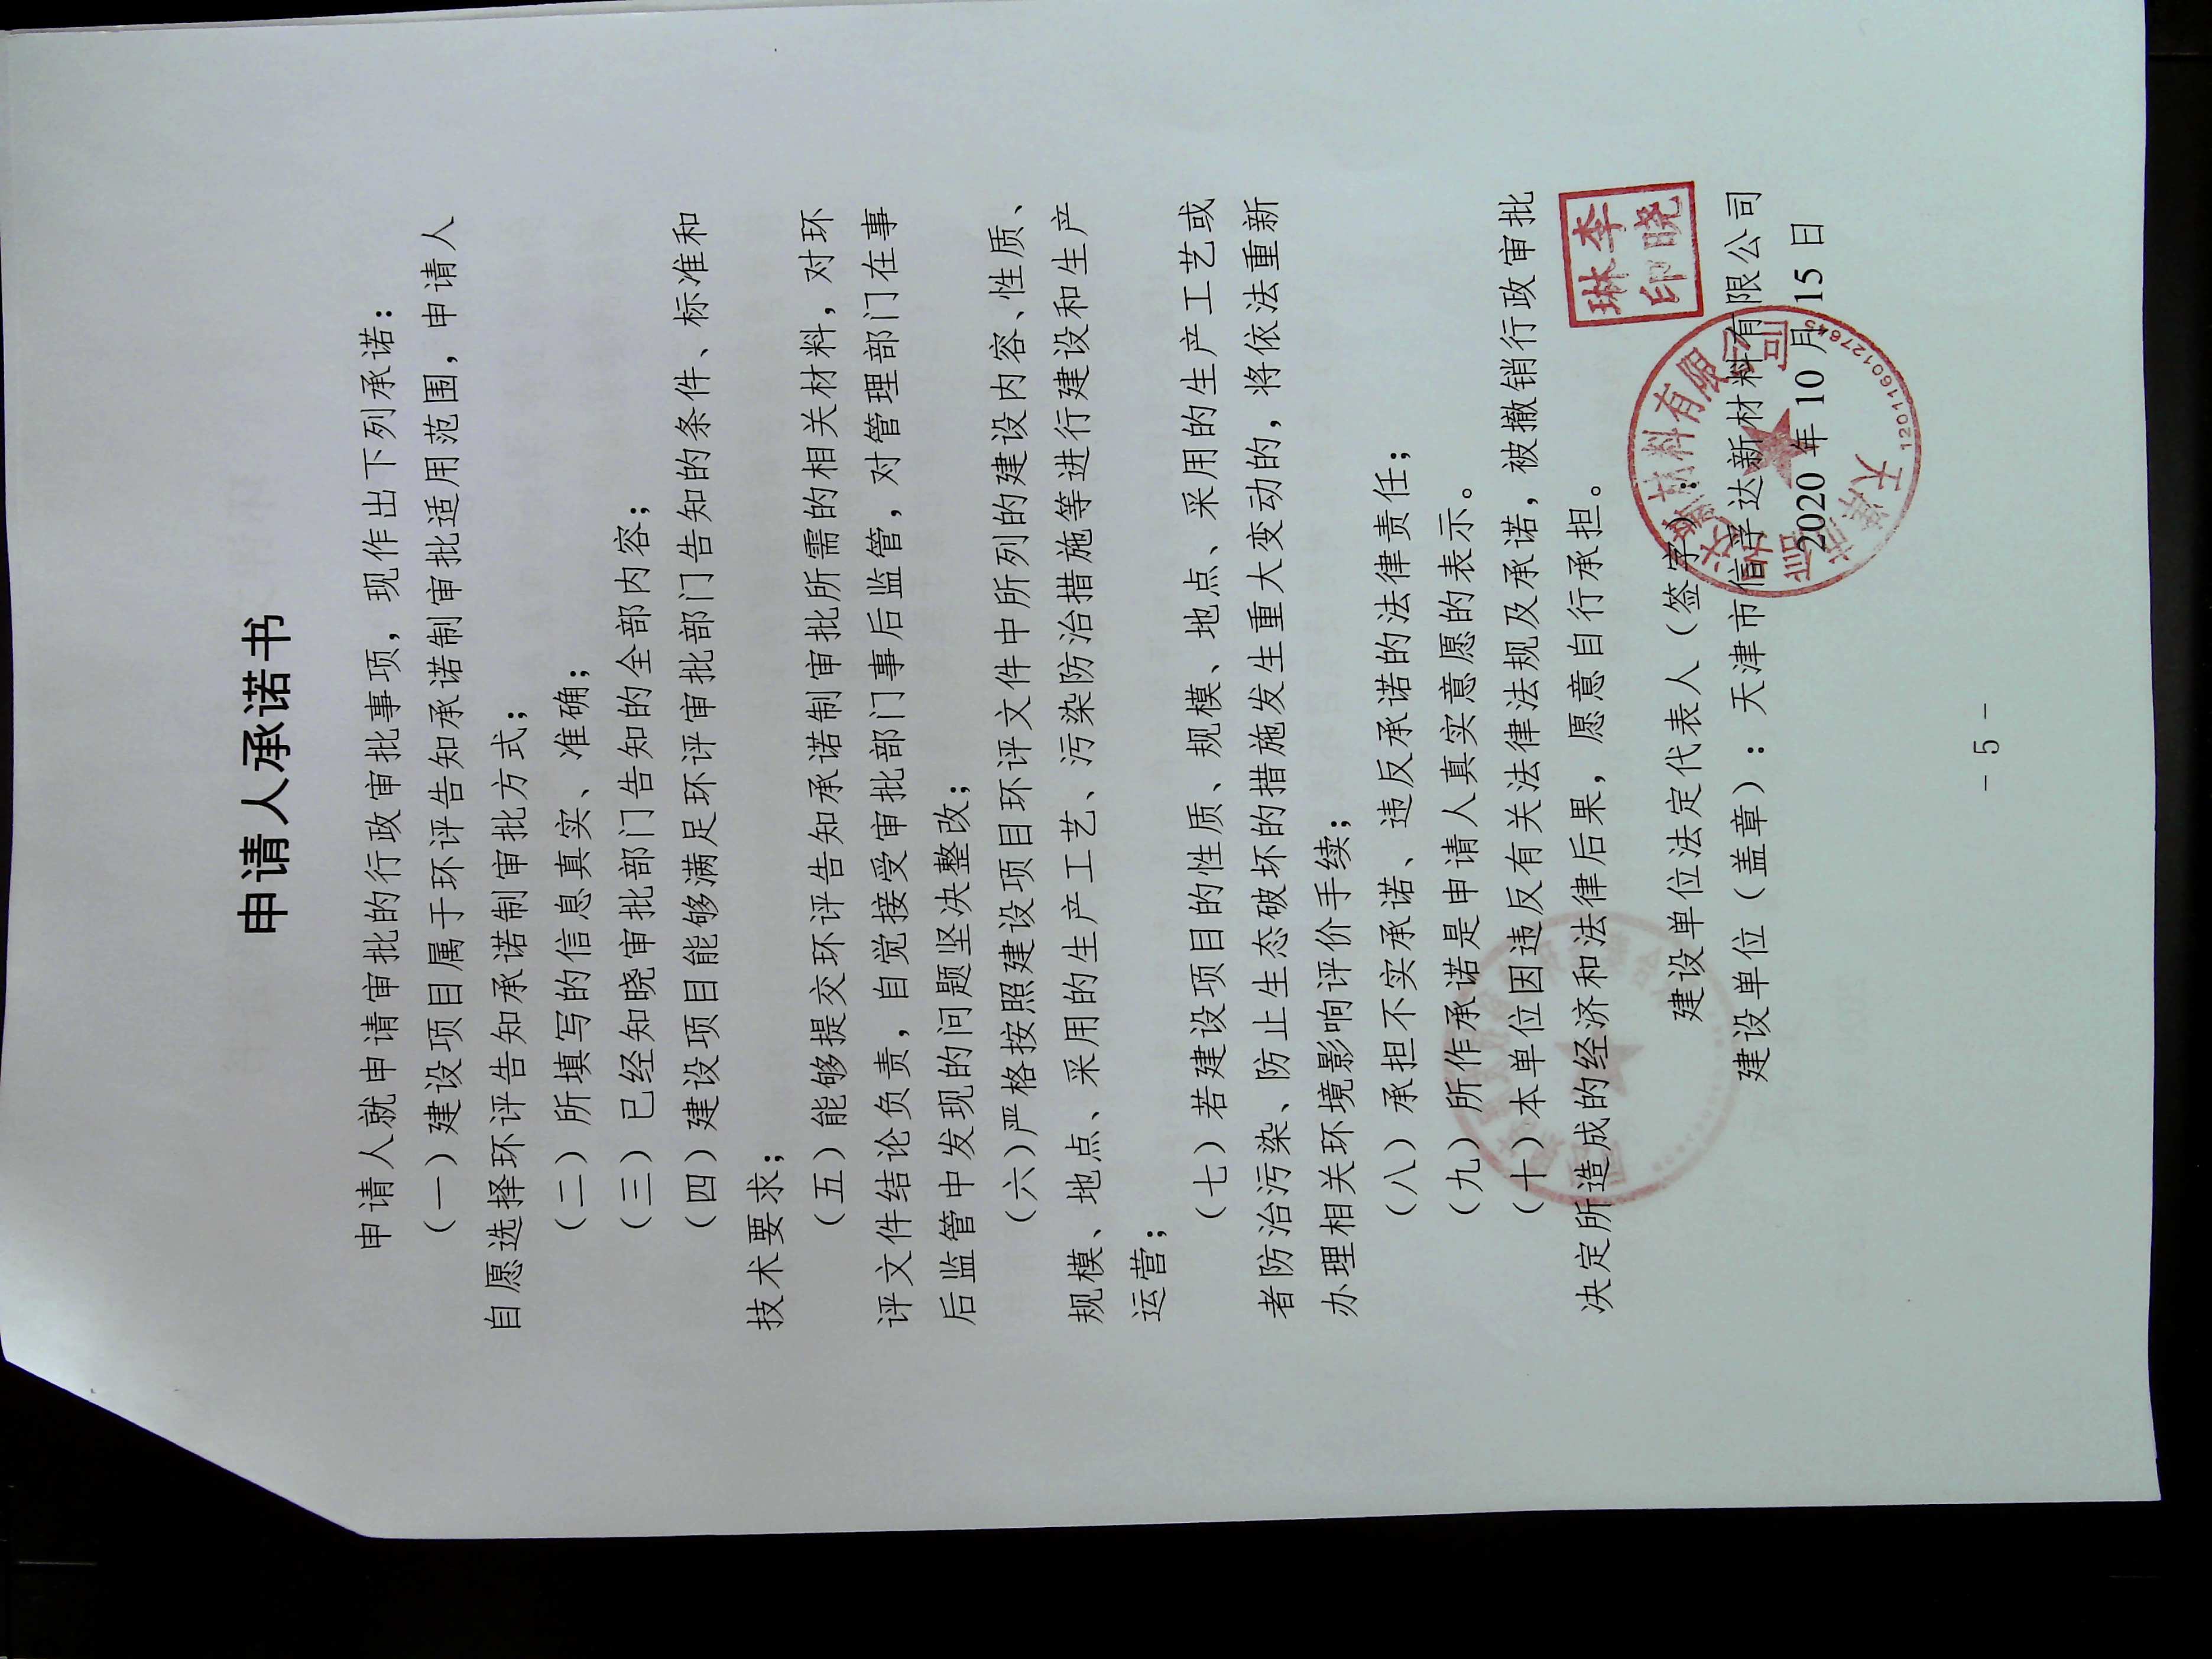 申请人承诺书
申请人就申请审批的行政审批事项，现作出下列承诺：
（一）建设项目属于环评告知承诺制审批适用范围，申请人
自愿选择环评告知承诺制审批方式；
（二）所填写的信息真实、准确；
（三）已经知晓审批部门告知的全部内容；
（四）建设项目能够满足环评审批部门告知的条件、标准和
技术要求；
（五）能够提交环评告知承诺制审批所需的相关材料，对环
评文件结论负责，自觉接受审批部门事后监管，对管理部门在事
后监管中发现的问题坚决整改；
（六）严格按照建设项目环评文件中所列的建设内容、性质、
规模、地点、采用的生产工艺、污染防治措施等进行建设和生产
运营；
（七）若建设项目的性质、规模、地点、采用的生产工艺或
者防治污染、防止生态破坏的措施发生重大变动的，将依法重新
办理相关环境影响评价手续；
（八）承担不实承诺、违反承诺的法律责任；
（九）所作承诺是申请人真实意愿的表示。
（十）本单位因违反有关法律法规及承诺，被撤销行政审批
决定所造成的经济和法律后果，愿意自行承担。
李晓
琳印
建设单位法定代表人（签字）：
建设单位（盖章）：天津市信孚达新材料有限公司
2020 年 10 月 15 日
- 5 -